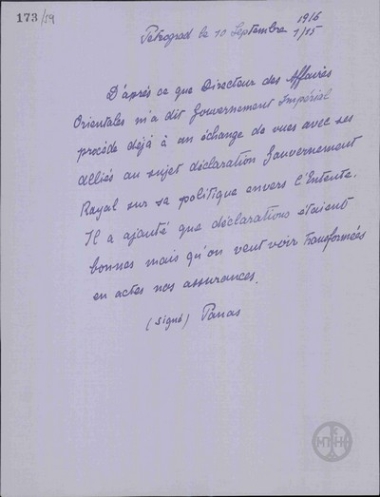 173/59
Petrograd le 10 Septembre 1916
1/15
D'après ce que Directeur des Affaires
Orientales m'a dit Gouvernement Impérial
procède déjà à un échange de vues avec ses
alliés au sujet déclaration Gouvernement
Royal sur sa politique envers l'Entente.
Il a ajouté que déclarations étaient
bonnes mais qu'on veut voir transformées
en actes nos assurances.
(signé) Panas